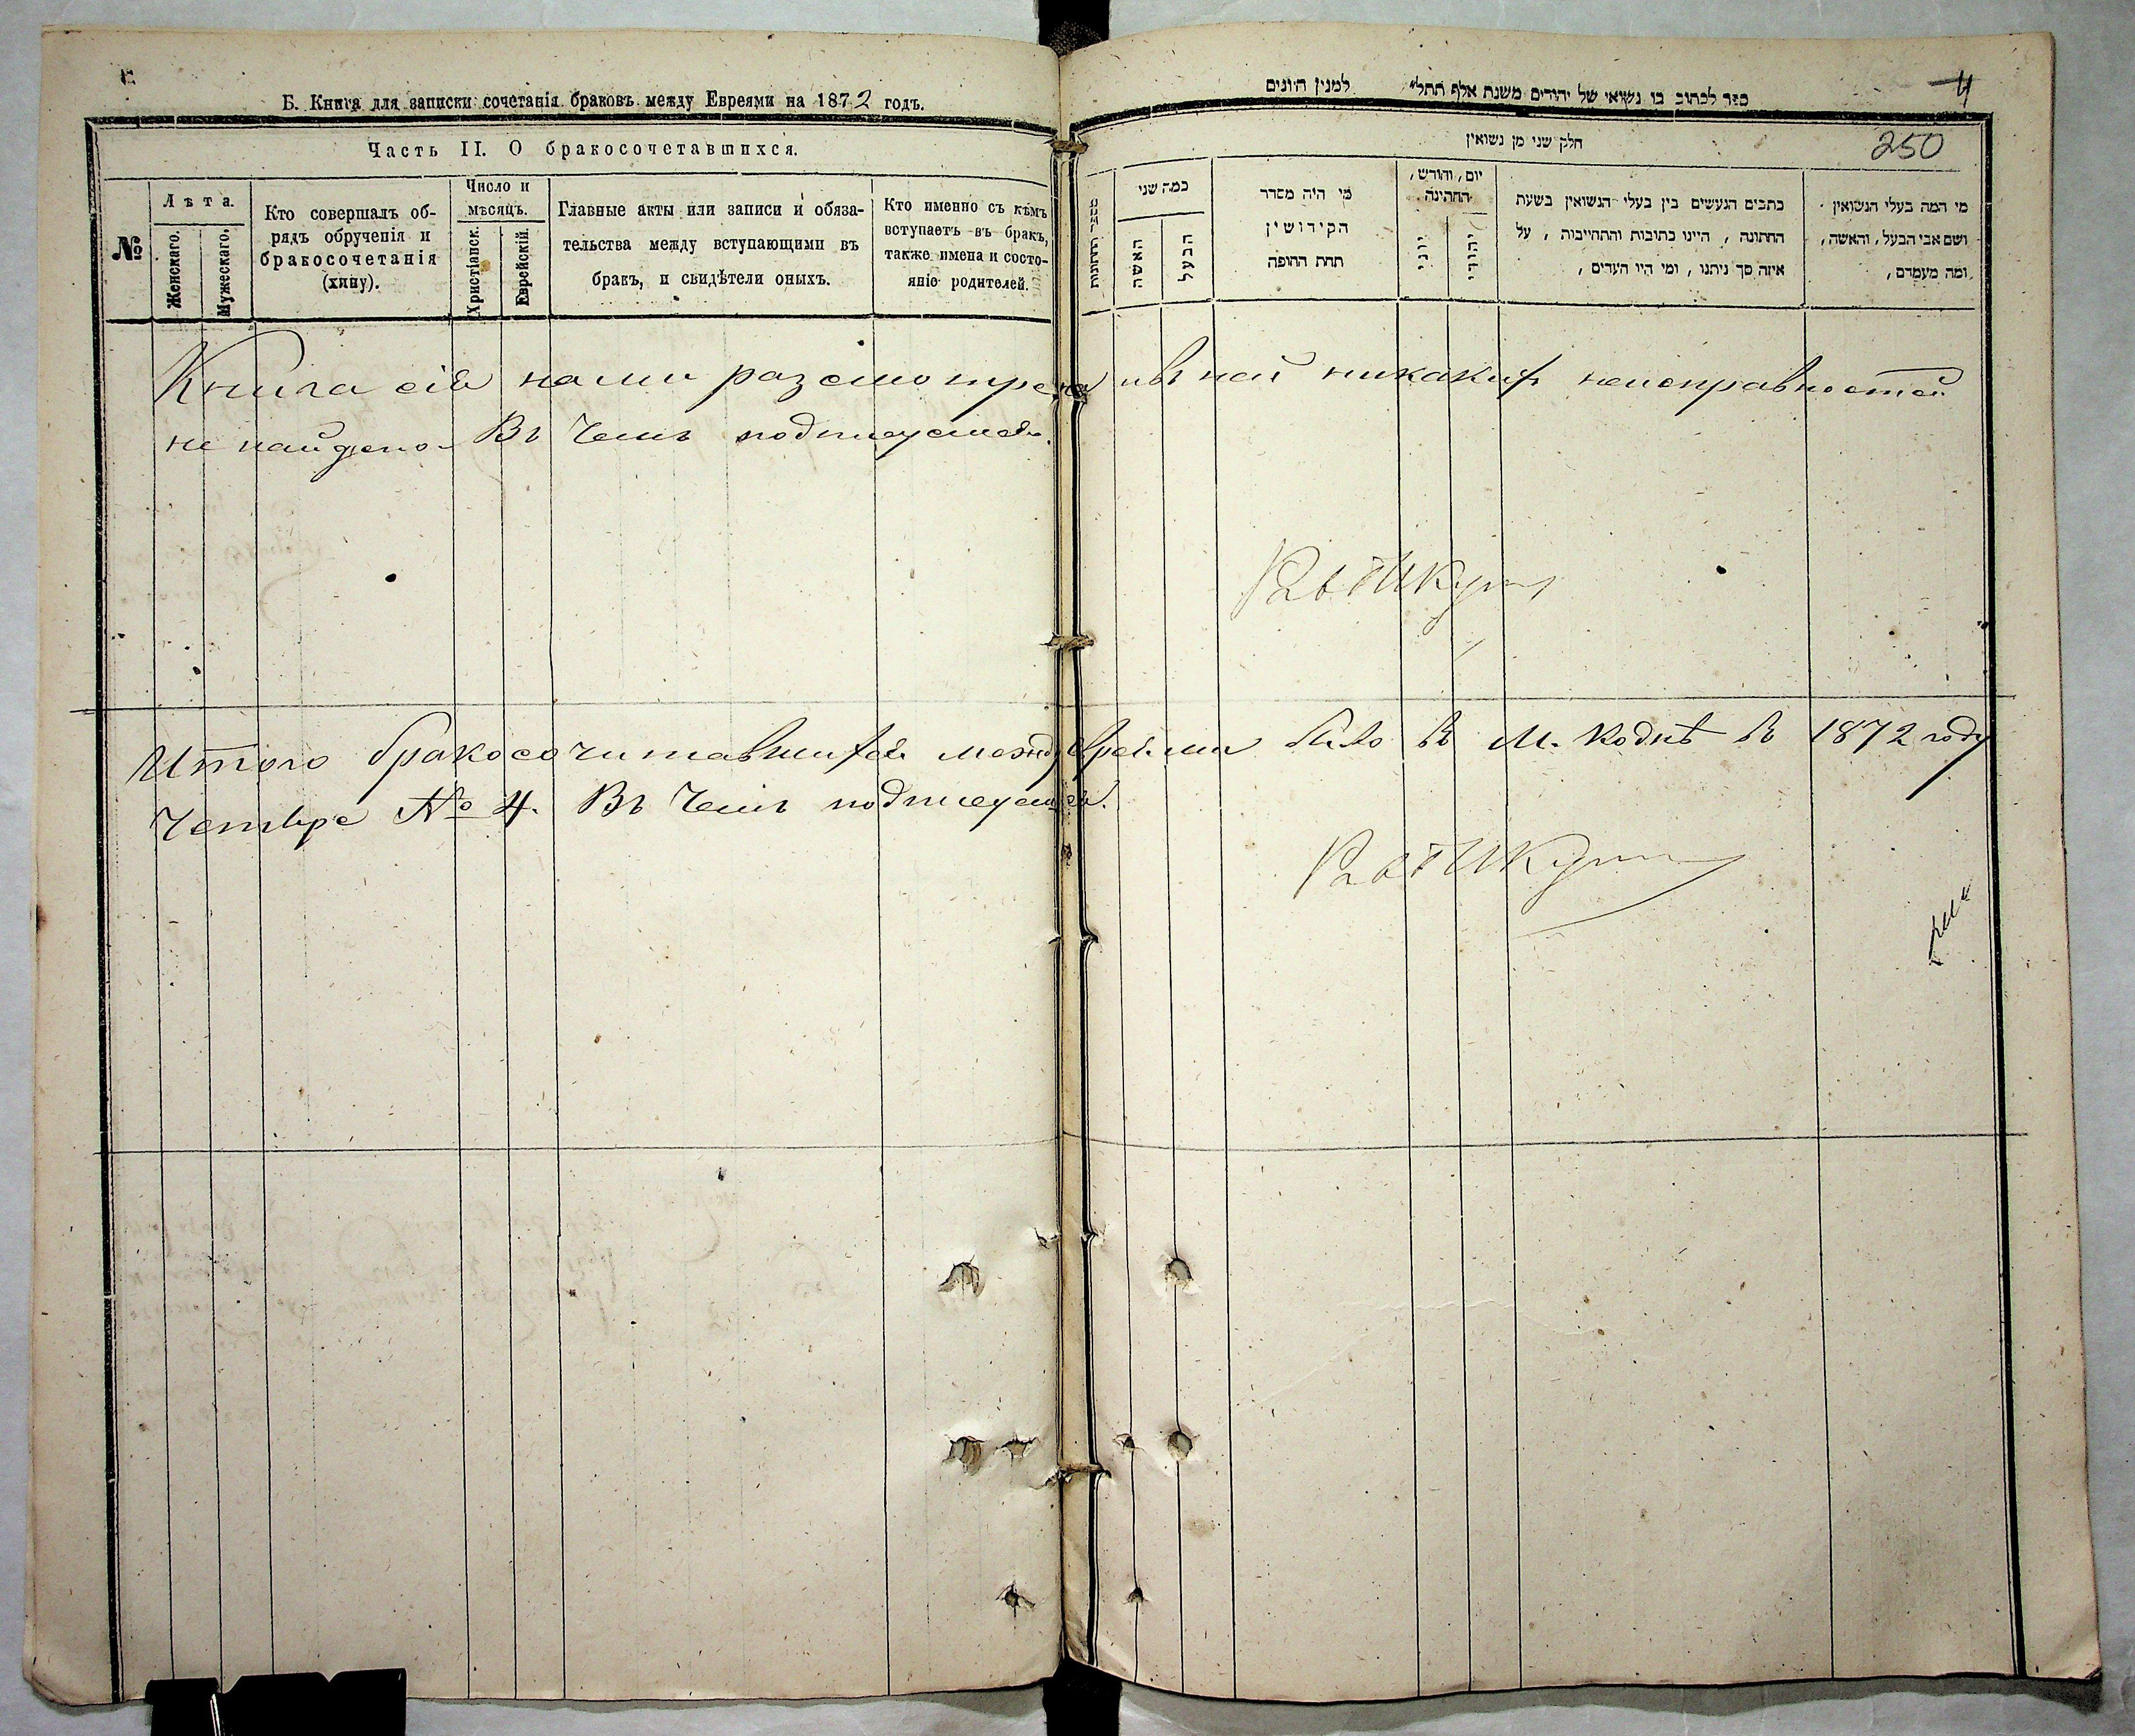 Б. Книга для записки сочетанія браковъ между Евреями на 1872 годъ.
Часть II. О бракосочетавшихся.
№
Лѣта.
Женскаго.
Мужескаго.
Кто совершалъ об-
рядъ обрученія и
бракосочетанія
(хипу).
Число и
мѣсяцъ.
Христіанск.
Еврейскій.
Главные акты или записи и обяза-
тельства между вступающими въ
бракъ, и свидѣтели оныхъ.
Кто именно съ кѣмъ
вступаетъ въ бракъ,
также имена и состо-
яніе родителей.
ספר לכתוב בו נשואי של יהודים משנת אלף תתל״ למנין היונים
4
חלק שני מן נשואין
250
מי המה בעלי הנשואין
ושם אבי הבעל, והאשה,
ומה מעמדם,
כתבים הנעשים בין בעלי הנשואין בשעת
החתונה, היינו כתובות והתחייבות, על
איזה סך ניתנו, ומי היו העדים,
יום, והודש,
החתינה
יהודי
יוני
מי היה מסדר
הקידושין
תחת החופה
כמה שני
הבעל
האשה
Книга сія нами разсмотрена и въ ней никакихъ неисправностей
не найдено Въ чемъ подписуемся.
Итого бракосочитавшихся между Евреями было въ М. Кодкѣ въ 1872 году
Четыре № 4. Въ чемъ подписуемся.